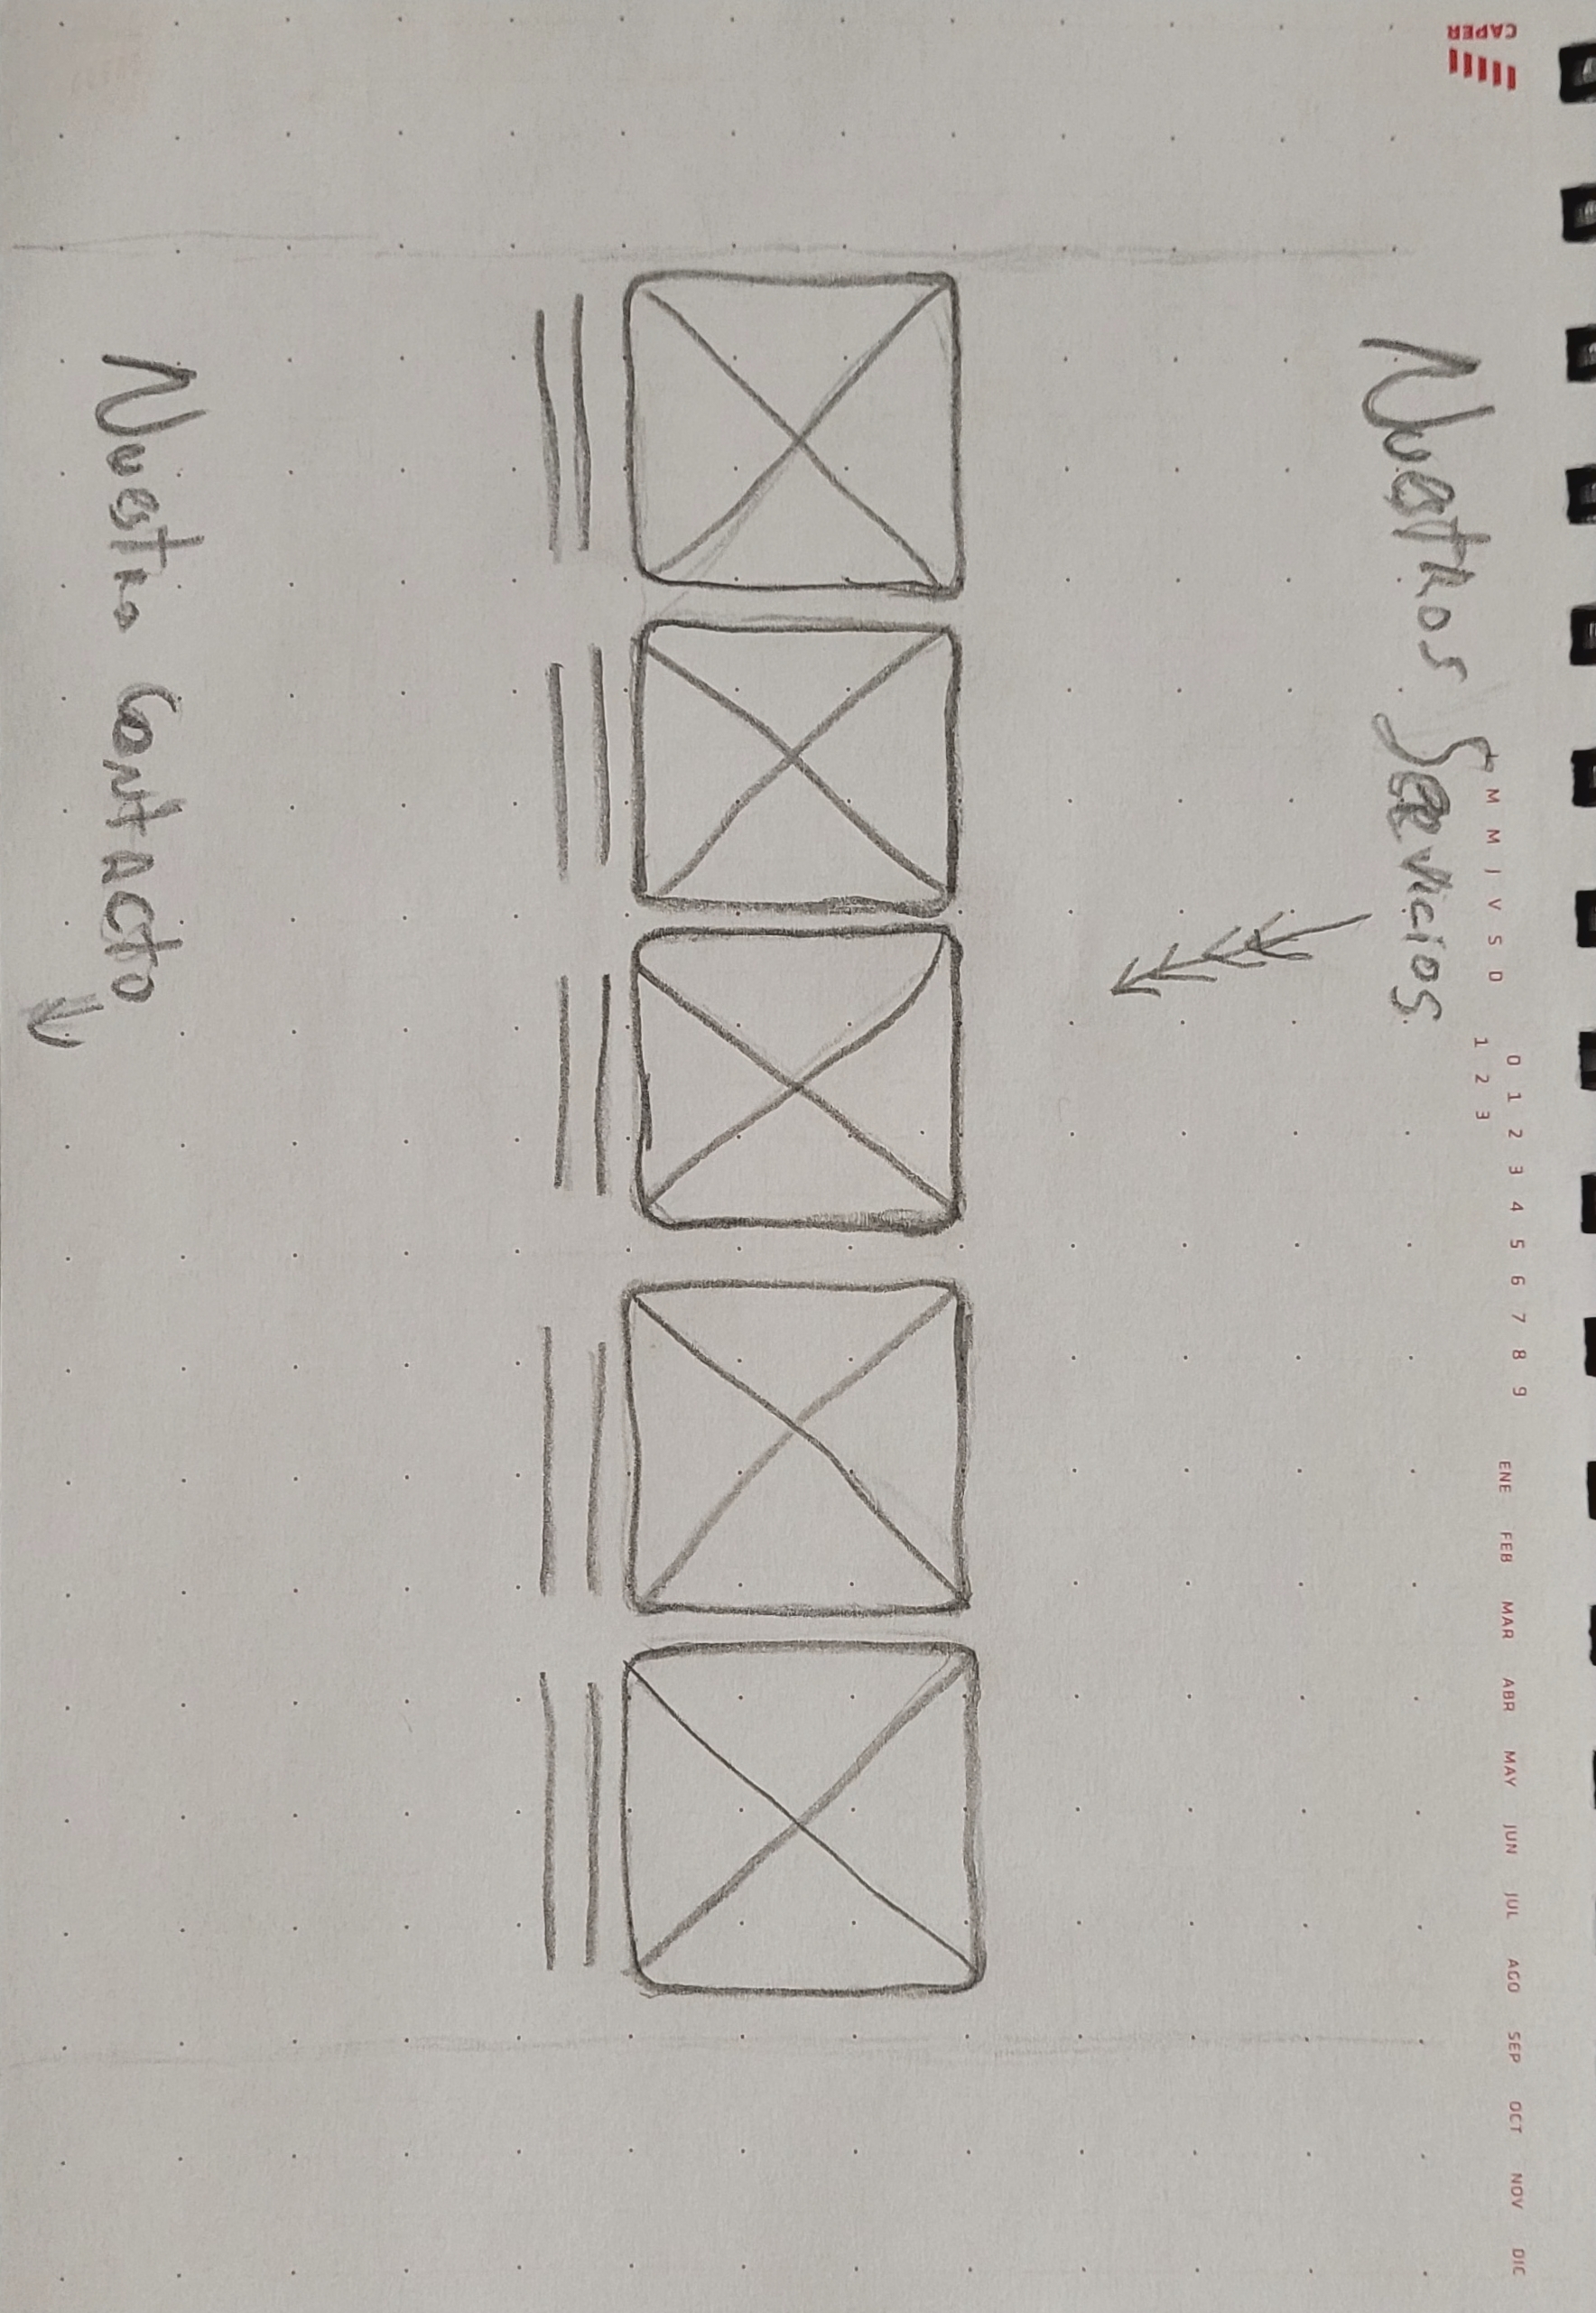 CAPER
L M M J V S D
0 1 2 3 4 5 6 7 8 9
1 2 3
ENE FEB MAR ABR MAY JUN JUL AGO SEP OCT NOV DIC
Nuestros Servicios
Nuestro Contacto